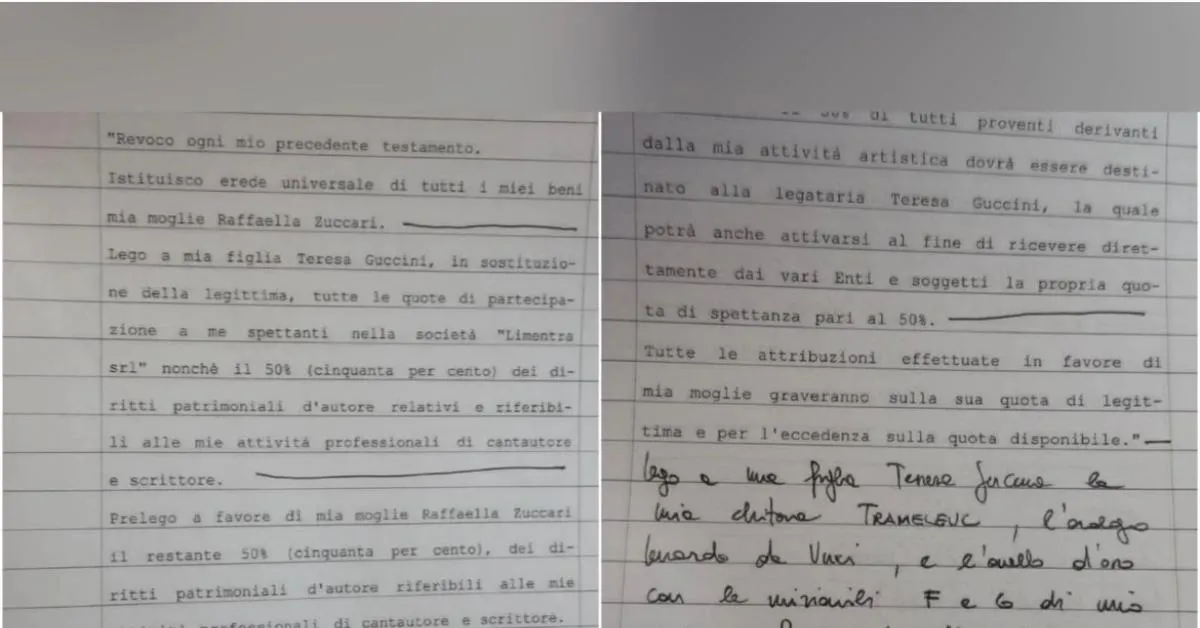 "Revoco ogni mio precedente testamento.
Istituisco erede universale di tutti i miei beni
mia moglie Raffaella Zuccari.
Lego a mia figlia Teresa Guccini, in sostituzio-
ne della legittima, tutte le quote di partecipa-
zione a me spettanti nella società "Limentra
srl" nonchè il 50% (cinquanta per cento) dei di-
ritti patrimoniali d'autore relativi e riferibi-
li alle mie attività professionali di cantautore
e scrittore.
Prelego a favore di mia moglie Raffaella Zuccari
il restante 50% (cinquanta per cento), dei di-
ritti patrimoniali d'autore riferibili alle mie
professionali di cantautore e scrittore.
50% di tutti proventi derivanti
dalla mia attività artistica dovrà essere desti-
nato alla legataria Teresa Guccini, la quale
potrà anche attivarsi al fine di ricevere diret-
tamente dai vari Enti e soggetti la propria quo-
ta di spettanza pari al 50%.
Tutte le attribuzioni effettuate in favore di
mia moglie graveranno sulla sua quota di legit-
tima e per l'eccedenza sulla quota disponibile."
lego a mia figlia Teresa Guccini la
mia TRAMELEUC, l'orologio
leonardo da Vinci, e l'anello d'oro
con le F e G di mio